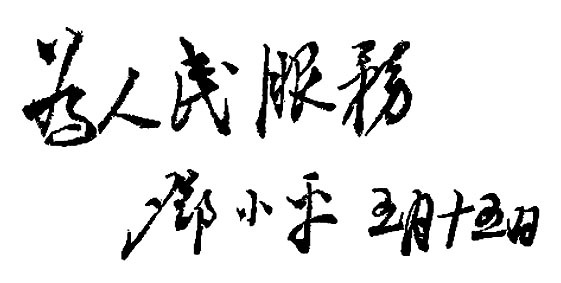 为人民服務
鄧小平 五月十五日